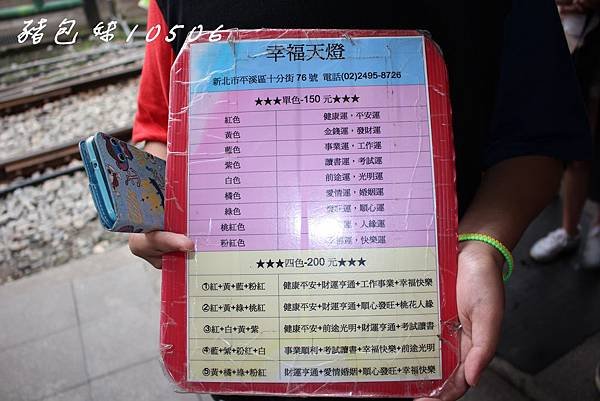 豬包妹10506
幸福天燈
新北市平溪區十分街76號 電話(02)2495-8726
★★★單色-150元★★★
紅色 健康運，平安運
黃色 金錢運，發財運
藍色 事業運，工作運
紫色 讀書運，考試運
白色 前途運，光明運
橘色 愛情運，婚姻運
綠色 運，順心運
桃紅色 運，人緣運
粉紅色 運，快樂運
★★★四色-200元★★★
①紅+黃+藍+粉紅 健康平安+財運亨通+工作事業+幸福快樂
②紅+黃+綠+桃紅 健康平安+財運亨通+順心發旺+桃花人緣
③紅+白+黃+紫 健康平安+前途光明+財運亨通+考試讀書
④藍+紫+粉紅+白 事業順利+考試讀書+幸福快樂+前途光明
⑤黃+橘+綠+粉紅 財運亨通+愛情婚姻+順心發旺+幸福快樂